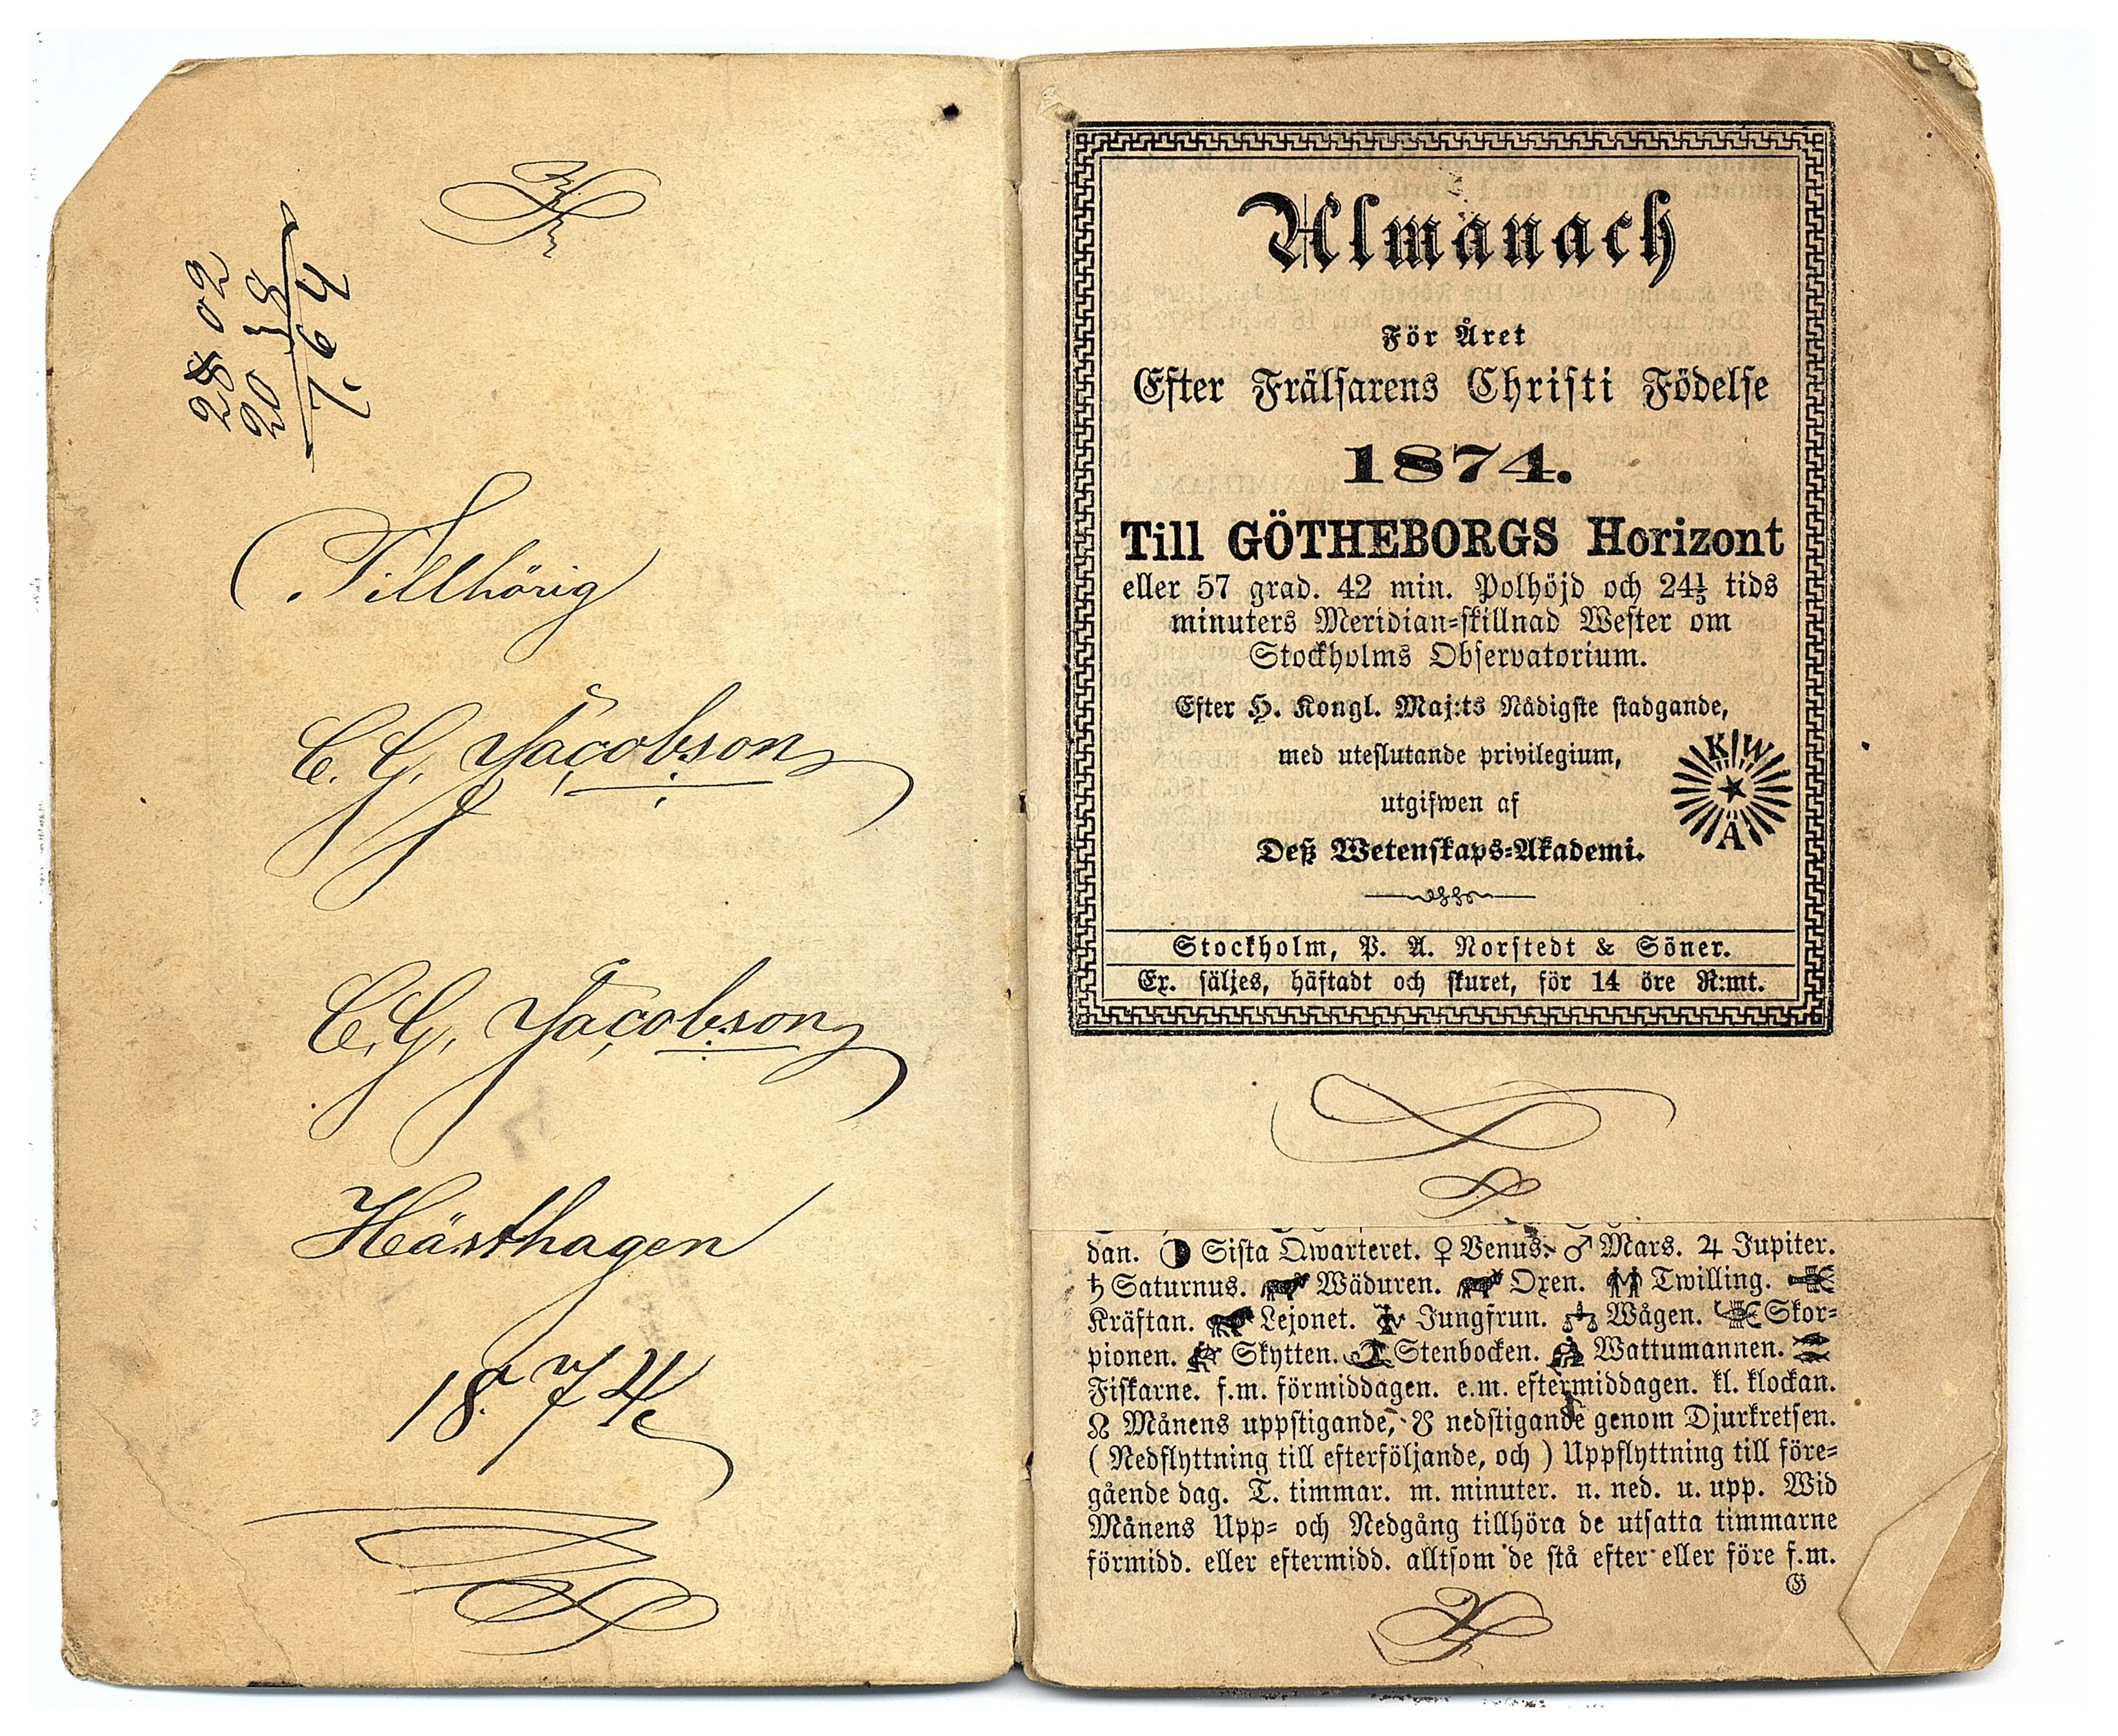 28 02
20 38
7,64
Tillhörig
C. G. Jacobson
C. G. Jacobson
Hästhagen
18 74
Almanach
För Året
Efter Frälsarens Christi Födelse
1874.
Till GÖTHEBORGS Horizont
eller 57 grad. 42 min. Polhöjd och 24⅕ tids
minuters Meridian-skillnad Wester om
Stockholms Observatorium.
Efter H. Kongl. Maj:ts Nådigste stadgande,
med uteslutande privilegium,
utgifwen af
Deß Wetenskaps-Akademi.
K W A
Stockholm, P. A. Norstedt & Söner.
Ex. säljes, häftadt och skuret, för 14 öre R:mt.
dan. Sista Qwarteret. ♀ Venus. ♂ Mars. ♃ Jupiter.
♄ Saturnus. Wäduren. Oxen. Twilling.
Kräftan. Lejonet. Jungfrun. Wågen. Skor-
pionen. Skytten. Stenbocken. Wattumannen.
Fiskarne. f.m. förmiddagen. e.m. eftermiddagen. kl. klockan.
☊ Månens uppstigande, ☋ nedstigande genom Djurkretsen.
( Nedflyttning till efterföljande, och ) Uppflyttning till före-
gående dag. T. timmar. m. minuter. n. ned. u. upp. Wid
Månens Upp- och Nedgång tillhöra de utsatta timmarne
förmidd. eller eftermidd. alltsom de stå efter eller före f.m.